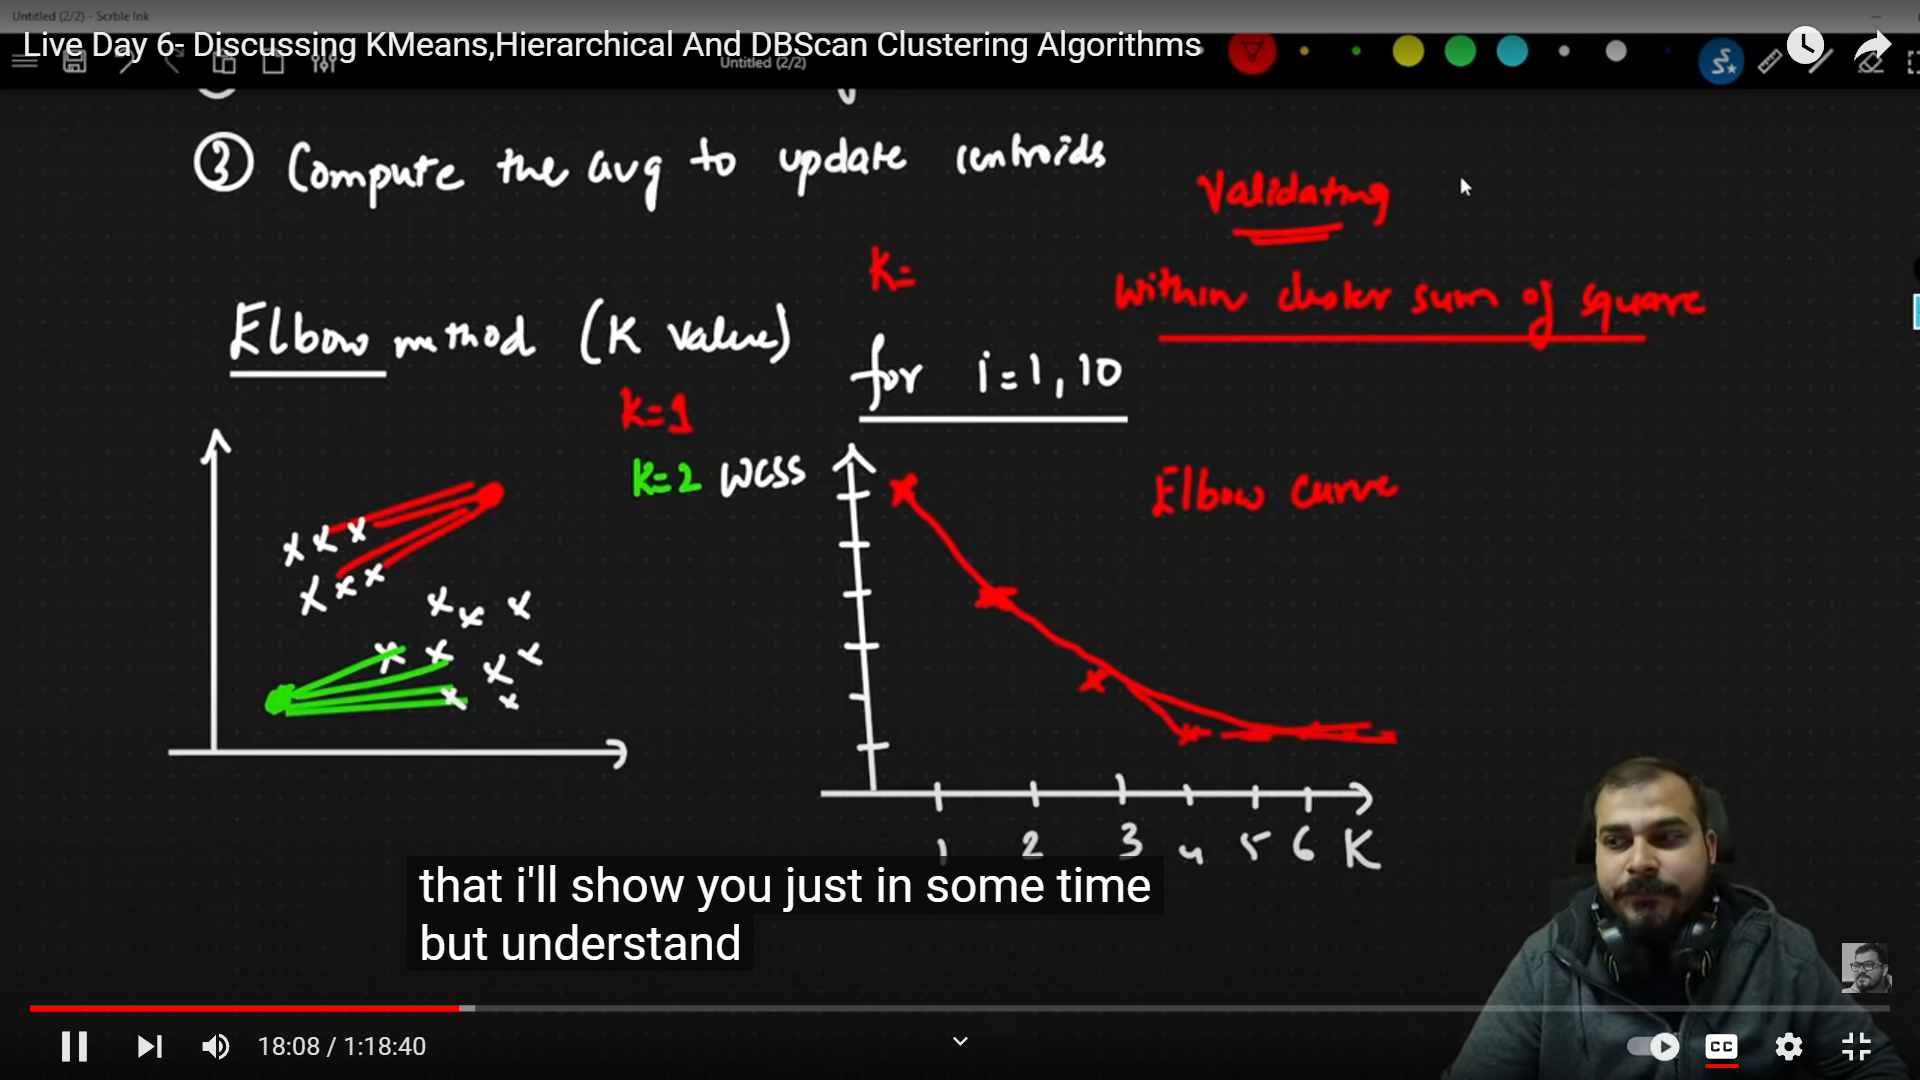 Untitled (2/2) - Scrble Ink
Live Day 6- Discussing KMeans,Hierarchical And DBScan Clustering Algorithms
Untitled (2/2)
③ Compute the avg to update centroids
Validating
K=
Within cluster sum of square
Elbow method (K value)
for i=1,10
K=1
K=2 WCSS
Elbow curve
1 2 3 4 5 6 K
that i'll show you just in some time
but understand
18:08 / 1:18:40
CC